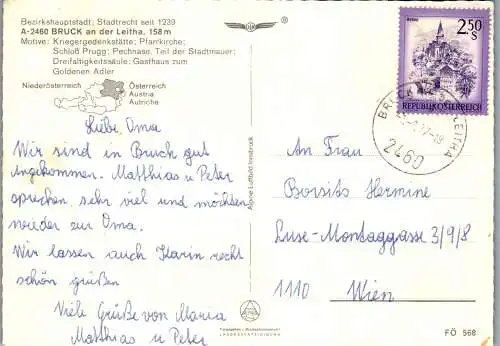 Bezirkshauptstadt; Stadtrecht seit 1239
A-2460 BRUCK an der Leitha, 158 m
Motive: Kriegergedenkstätte; Pfarrkirche;
Schloß Prugg; Pechnase, Teil der Stadtmauer;
Dreifaltigkeitssäule; Gasthaus zum
Goldenen Adler
Niederösterreich
Österreich
Austria
Autriche
Liebe Oma
Wir sind in Bruck gut
Angekommen. Matthias u Peter
sprechen sehr viel und möchten
wieder zur Oma.
Wir lassen auch Karin recht
schön grüßen
Viele Grüße von Maria
Matthias u Peter
Alpine Luftbild Innsbruck
2.50
S
REPUBLIK ÖSTERREICH
BRUCK LEITHA
2460
An Frau
Borsits Hermine
Luse-Montaggasse 3/9/8
1110 Wien
FÖ 568